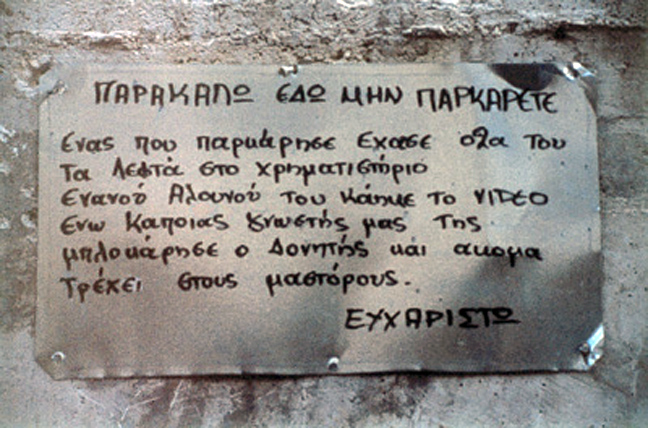 ΠΑΡΑΚΑΛΩ ΕΔΩ ΜΗΝ ΠΑΡΚΑΡΕΤΕ
Ενας που παρκάρησε Εχασε ολα Του
Τα Λεφτά στο χρηματιστήριο
Ενανού Αλουνού Του κάηκε το VIDEO
Ενω Καποιας γνωστής μας Της
μπλοκάρησε ο Δονητής και ακομα
Τρέχει στους μαστόρους.
ΕΥΧΑΡΙΣΤΩ